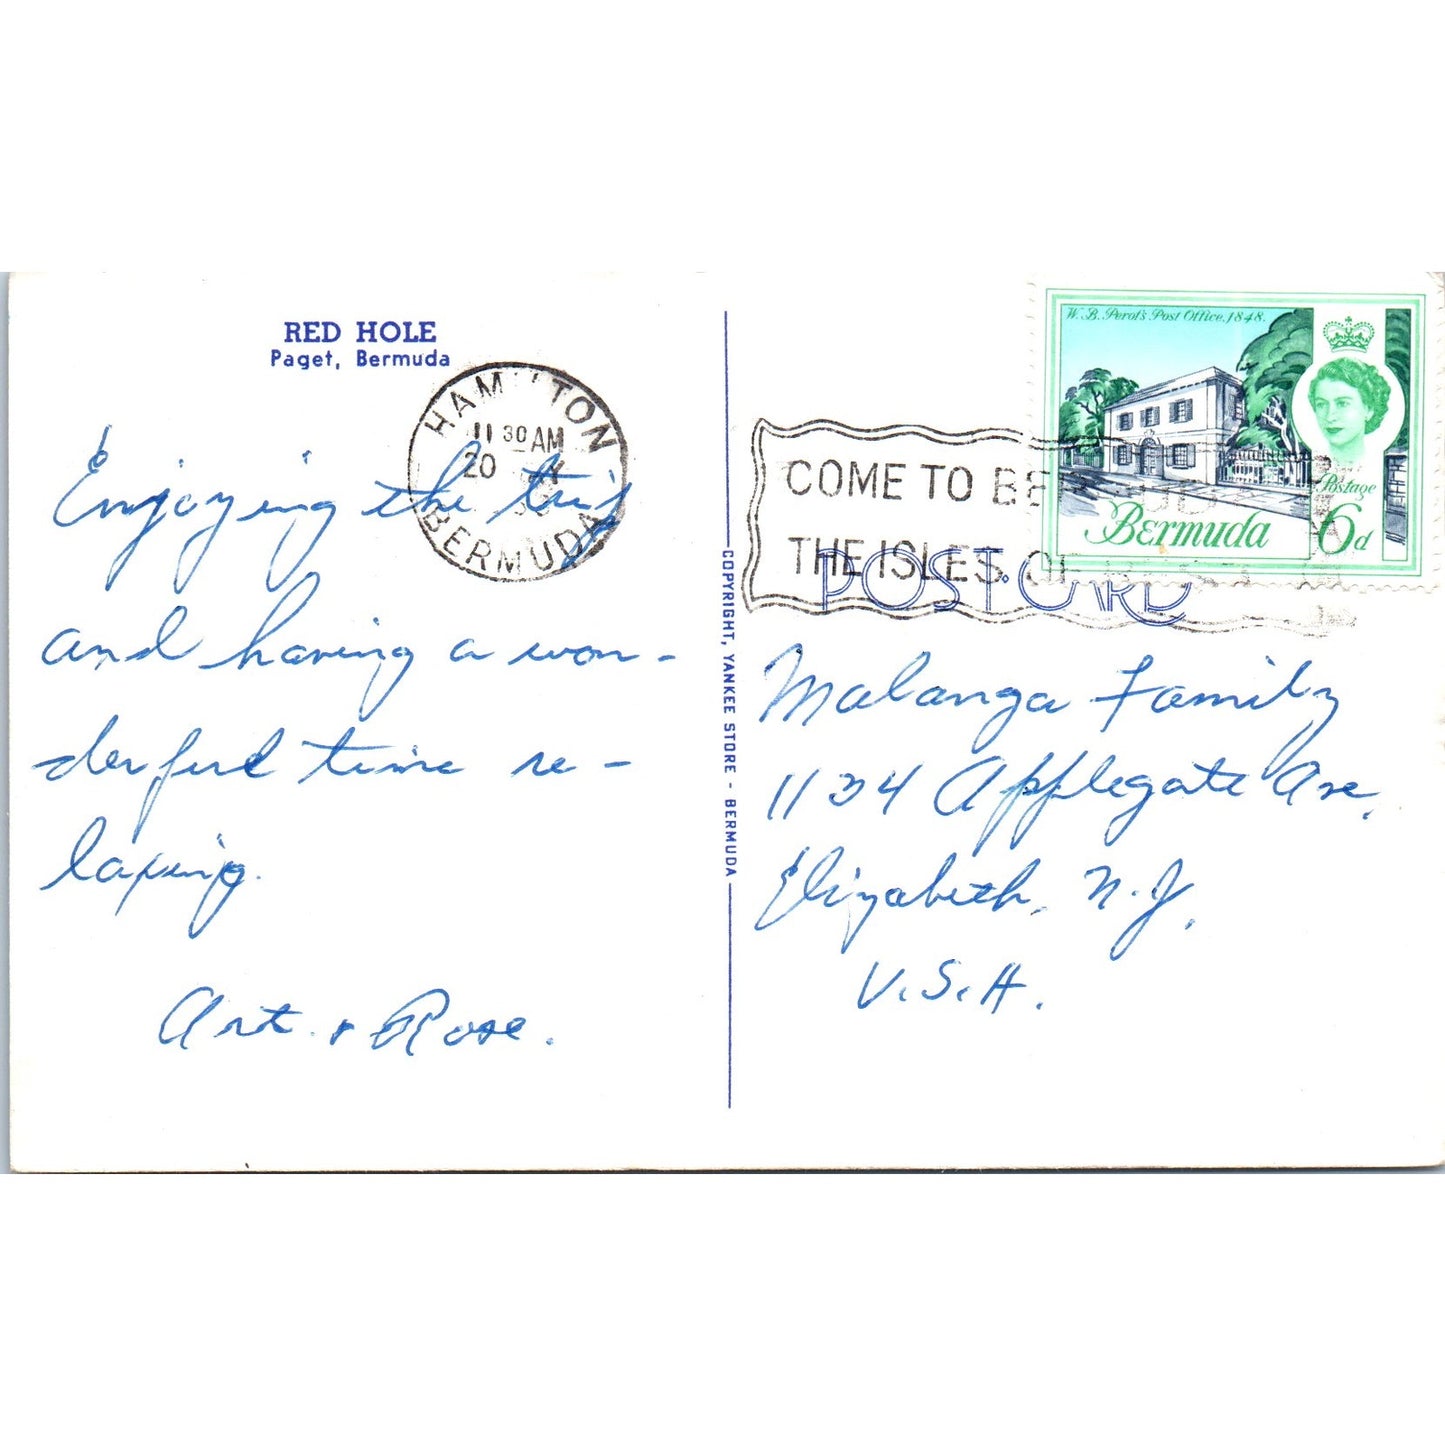 RED HOLE
Paget, Bermuda
HAMILTON
11 30 AM
20
BERMUDA
Enjoying the trip
and having a won-
derful time re-
laxing.
Art. & Rose.
COPYRIGHT, YANKEE STORE - BERMUDA
W. B. Perot's Post Office, 1848.
Postage
Bermuda 6d
COME TO BERMUDA
THE ISLES OF
POST CARD
Malanga Family
1134 Applegate Ave.
Elizabeth, N.J.
U.S.A.